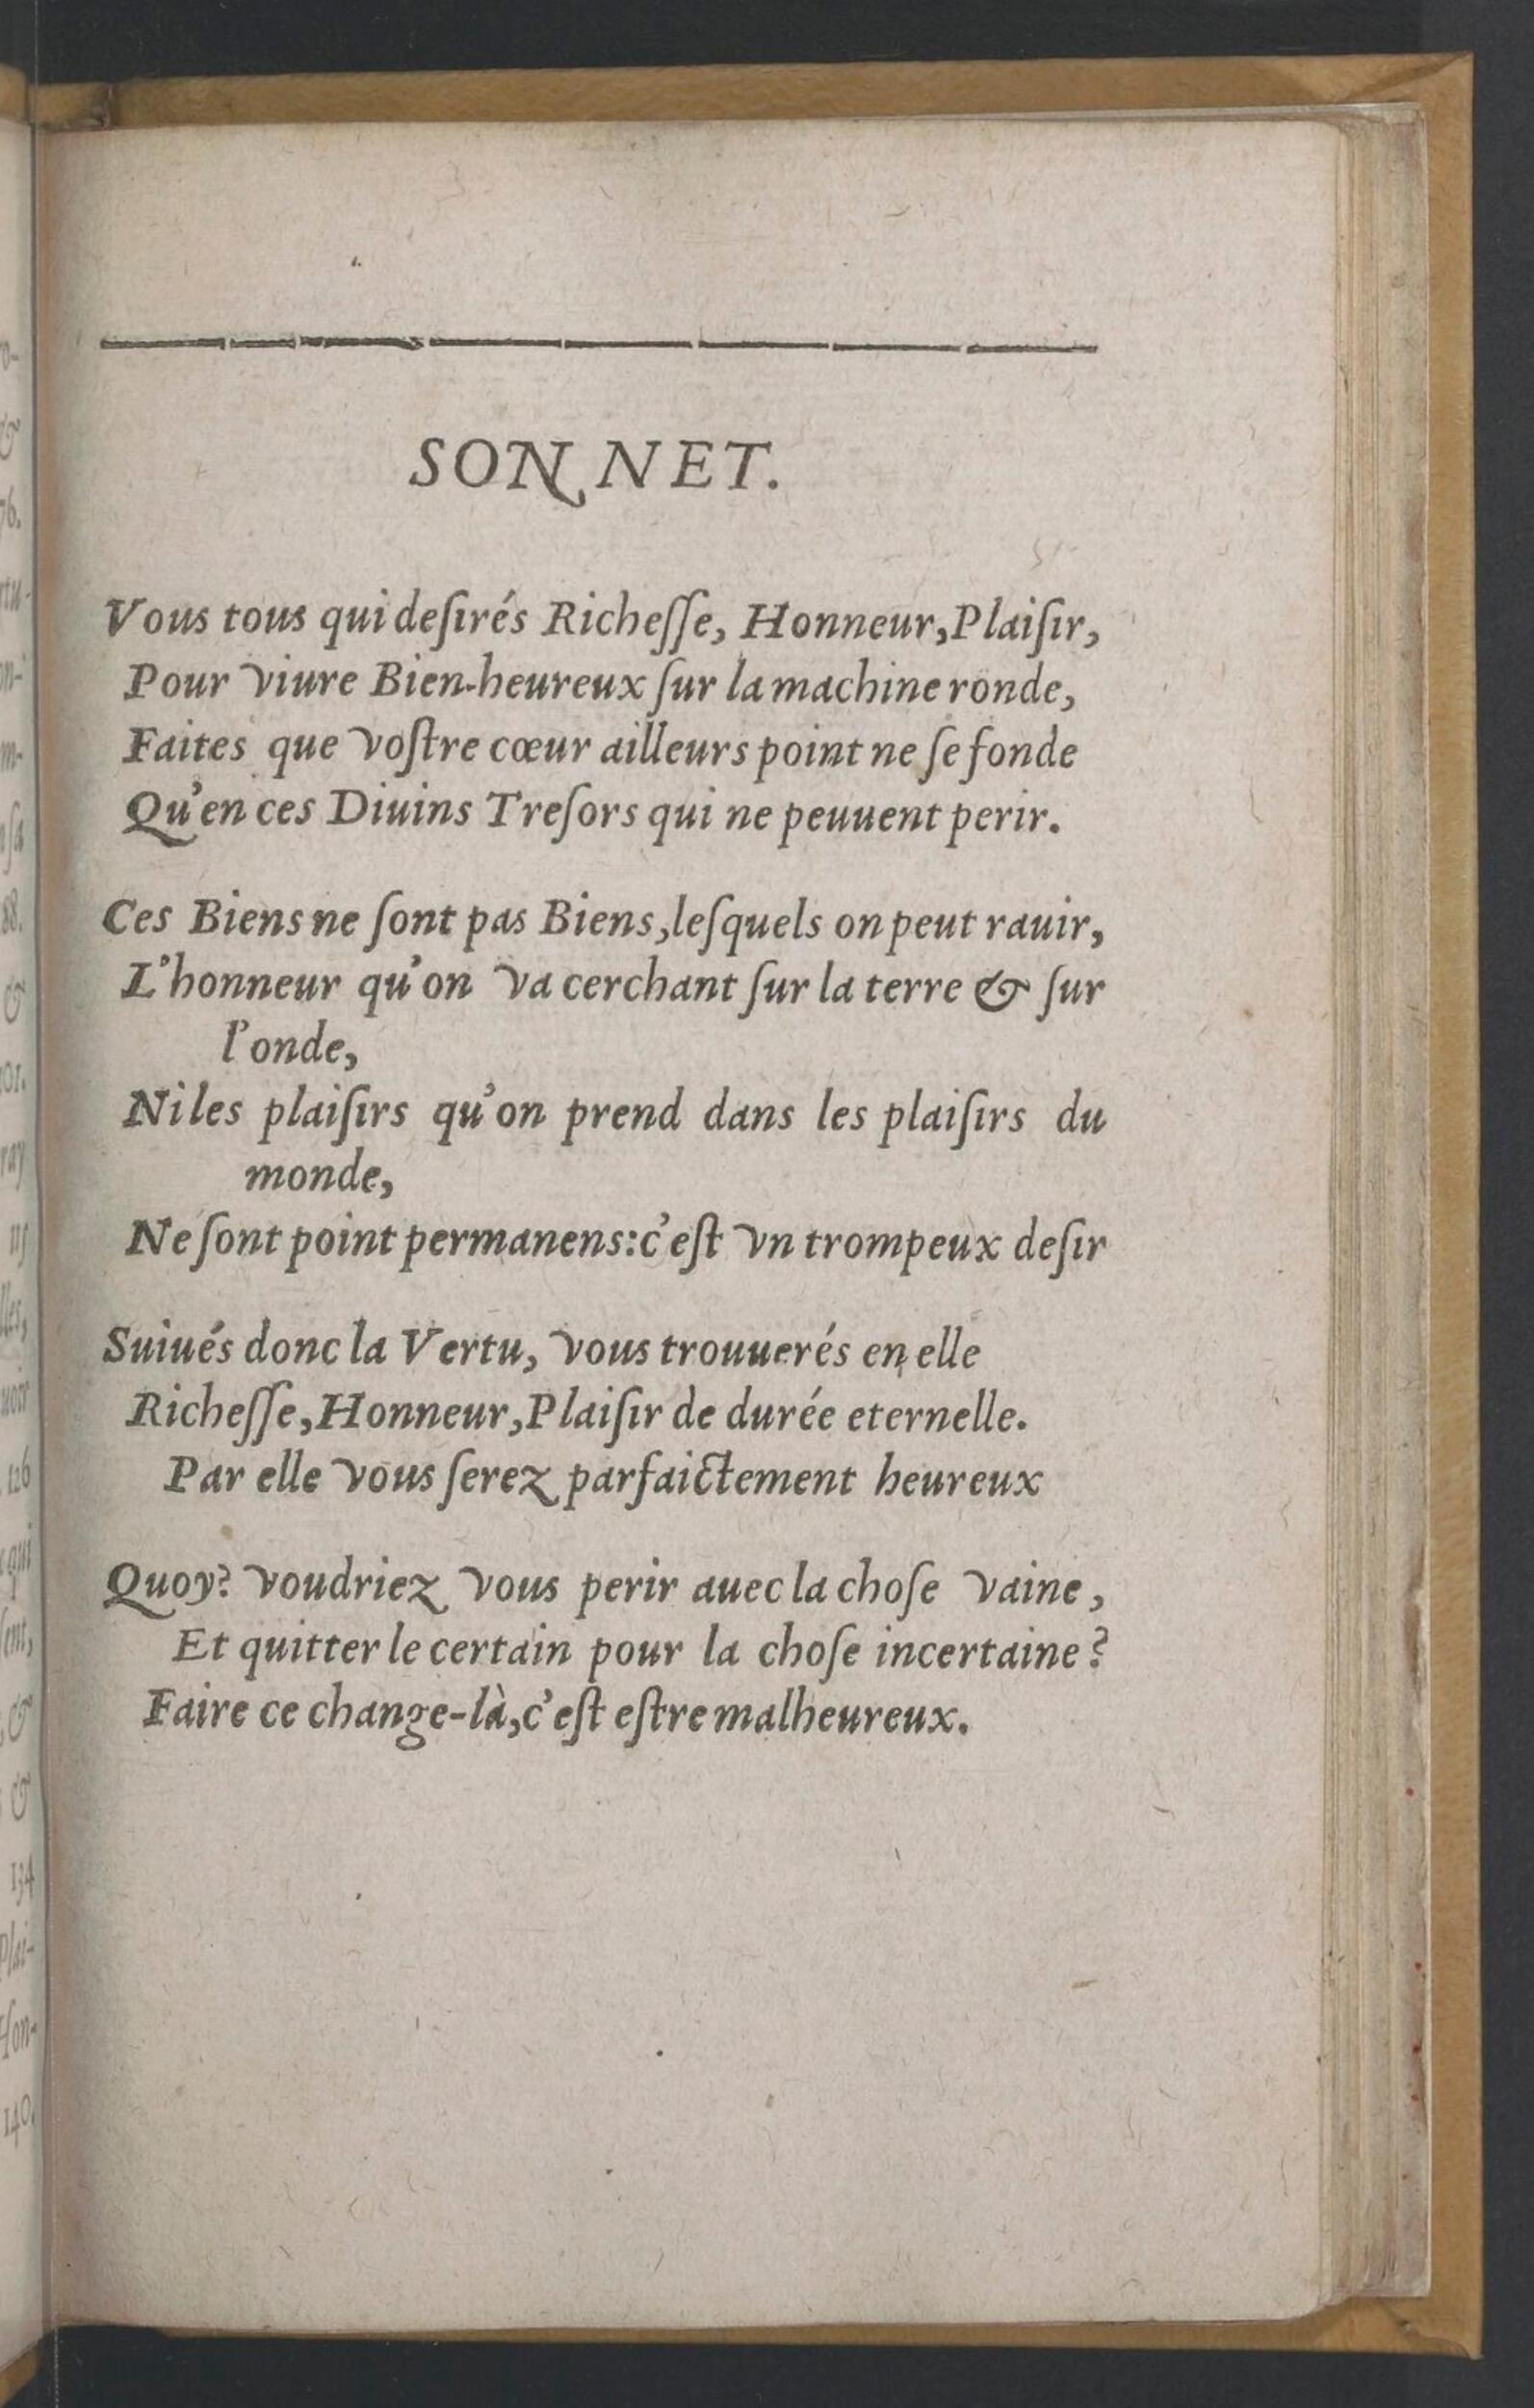 SONNET.
Vous tous qui deſirés Richeſſe, Honneur, Plaiſir,
Pour viure Bien-heureux ſur la machine ronde,
Faites que voſtre cœur ailleurs point ne ſe fonde
Qu'en ces Diuins Treſors qui ne peuuent perir.
Ces Biens ne ſont pas Biens, leſquels on peut rauir,
L'honneur qu'on va cerchant ſur la terre & ſur
l'onde,
Ni les plaiſirs qu'on prend dans les plaiſirs du
monde,
Ne ſont point permanens: c'eſt vn trompeux deſir
Suiués donc la Vertu, vous trouuerés en elle
Richeſſe, Honneur, Plaiſir de durée eternelle.
Par elle vous ſerez parfaictement heureux
Quoy? voudriez vous perir auec la choſe vaine,
Et quitter le certain pour la choſe incertaine?
Faire ce change-là, c'eſt eſtre malheureux.